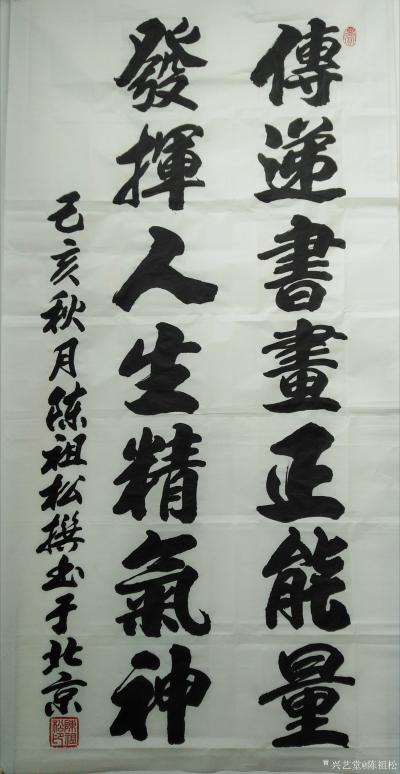 傳递書畫正能量
發揮人生精氣神
己亥秋月陈祖松撰书于北京
陳祖松印
兴艺堂@陈祖松